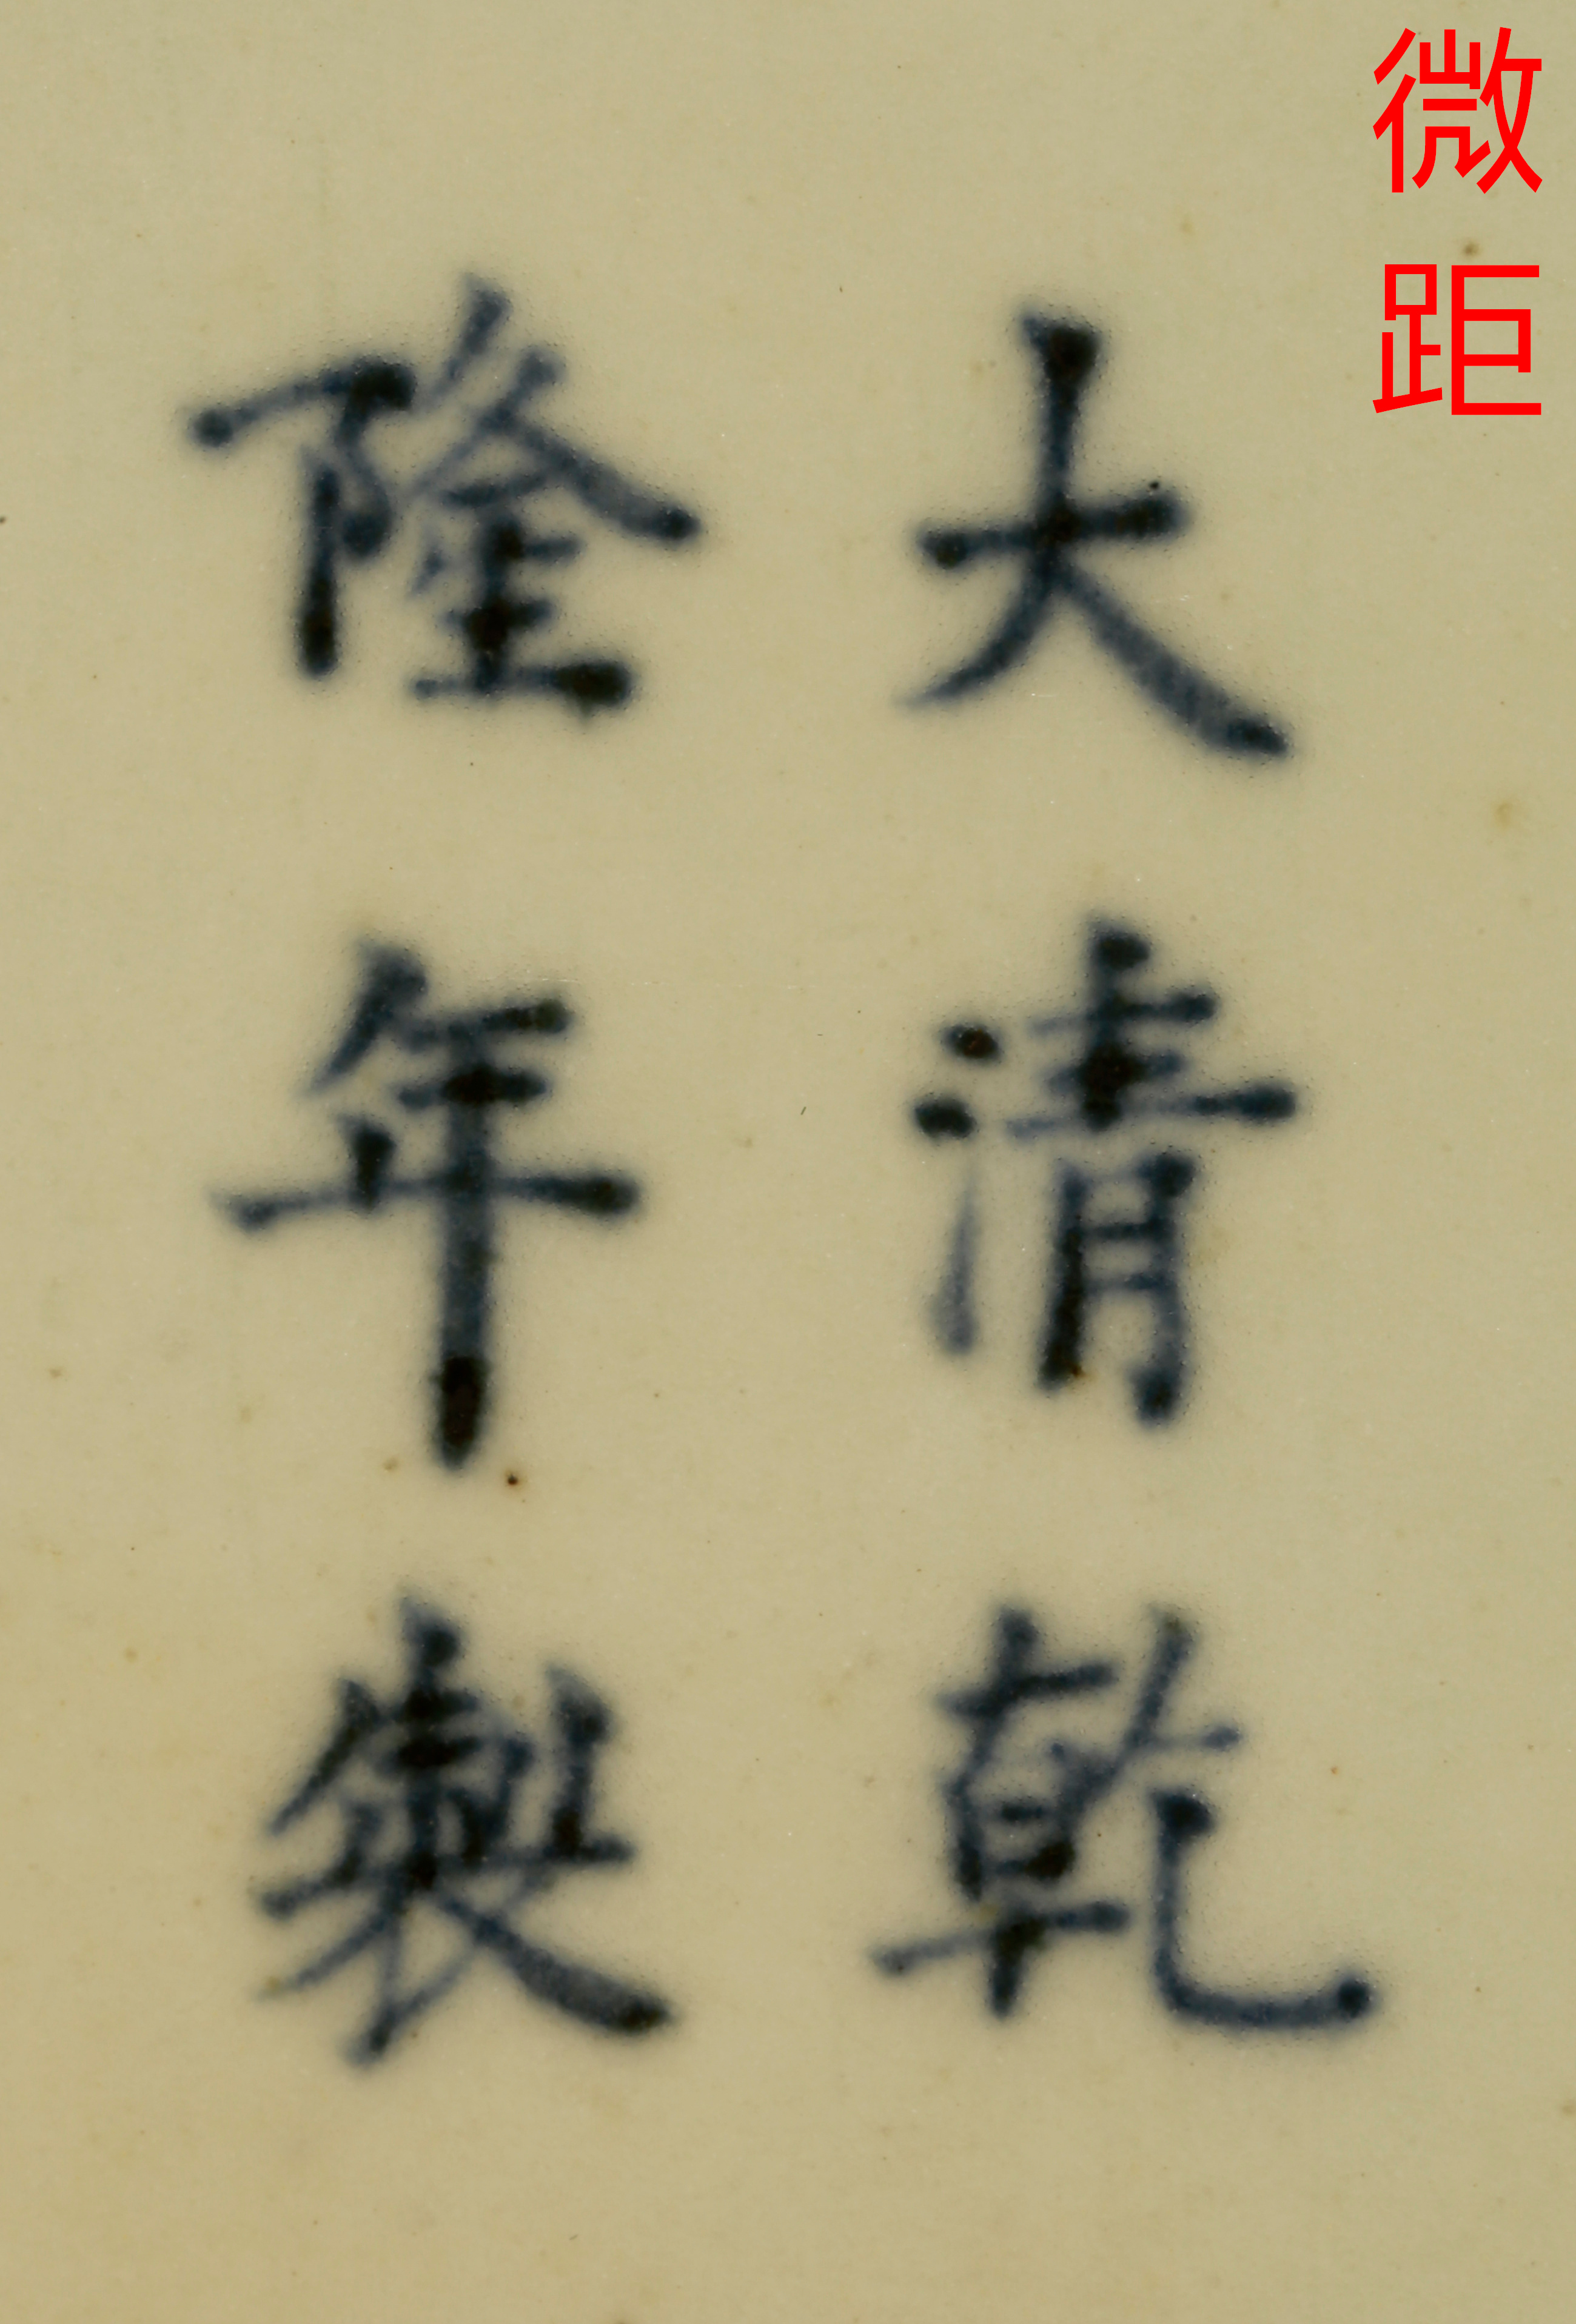 微距
大清乾
隆年製